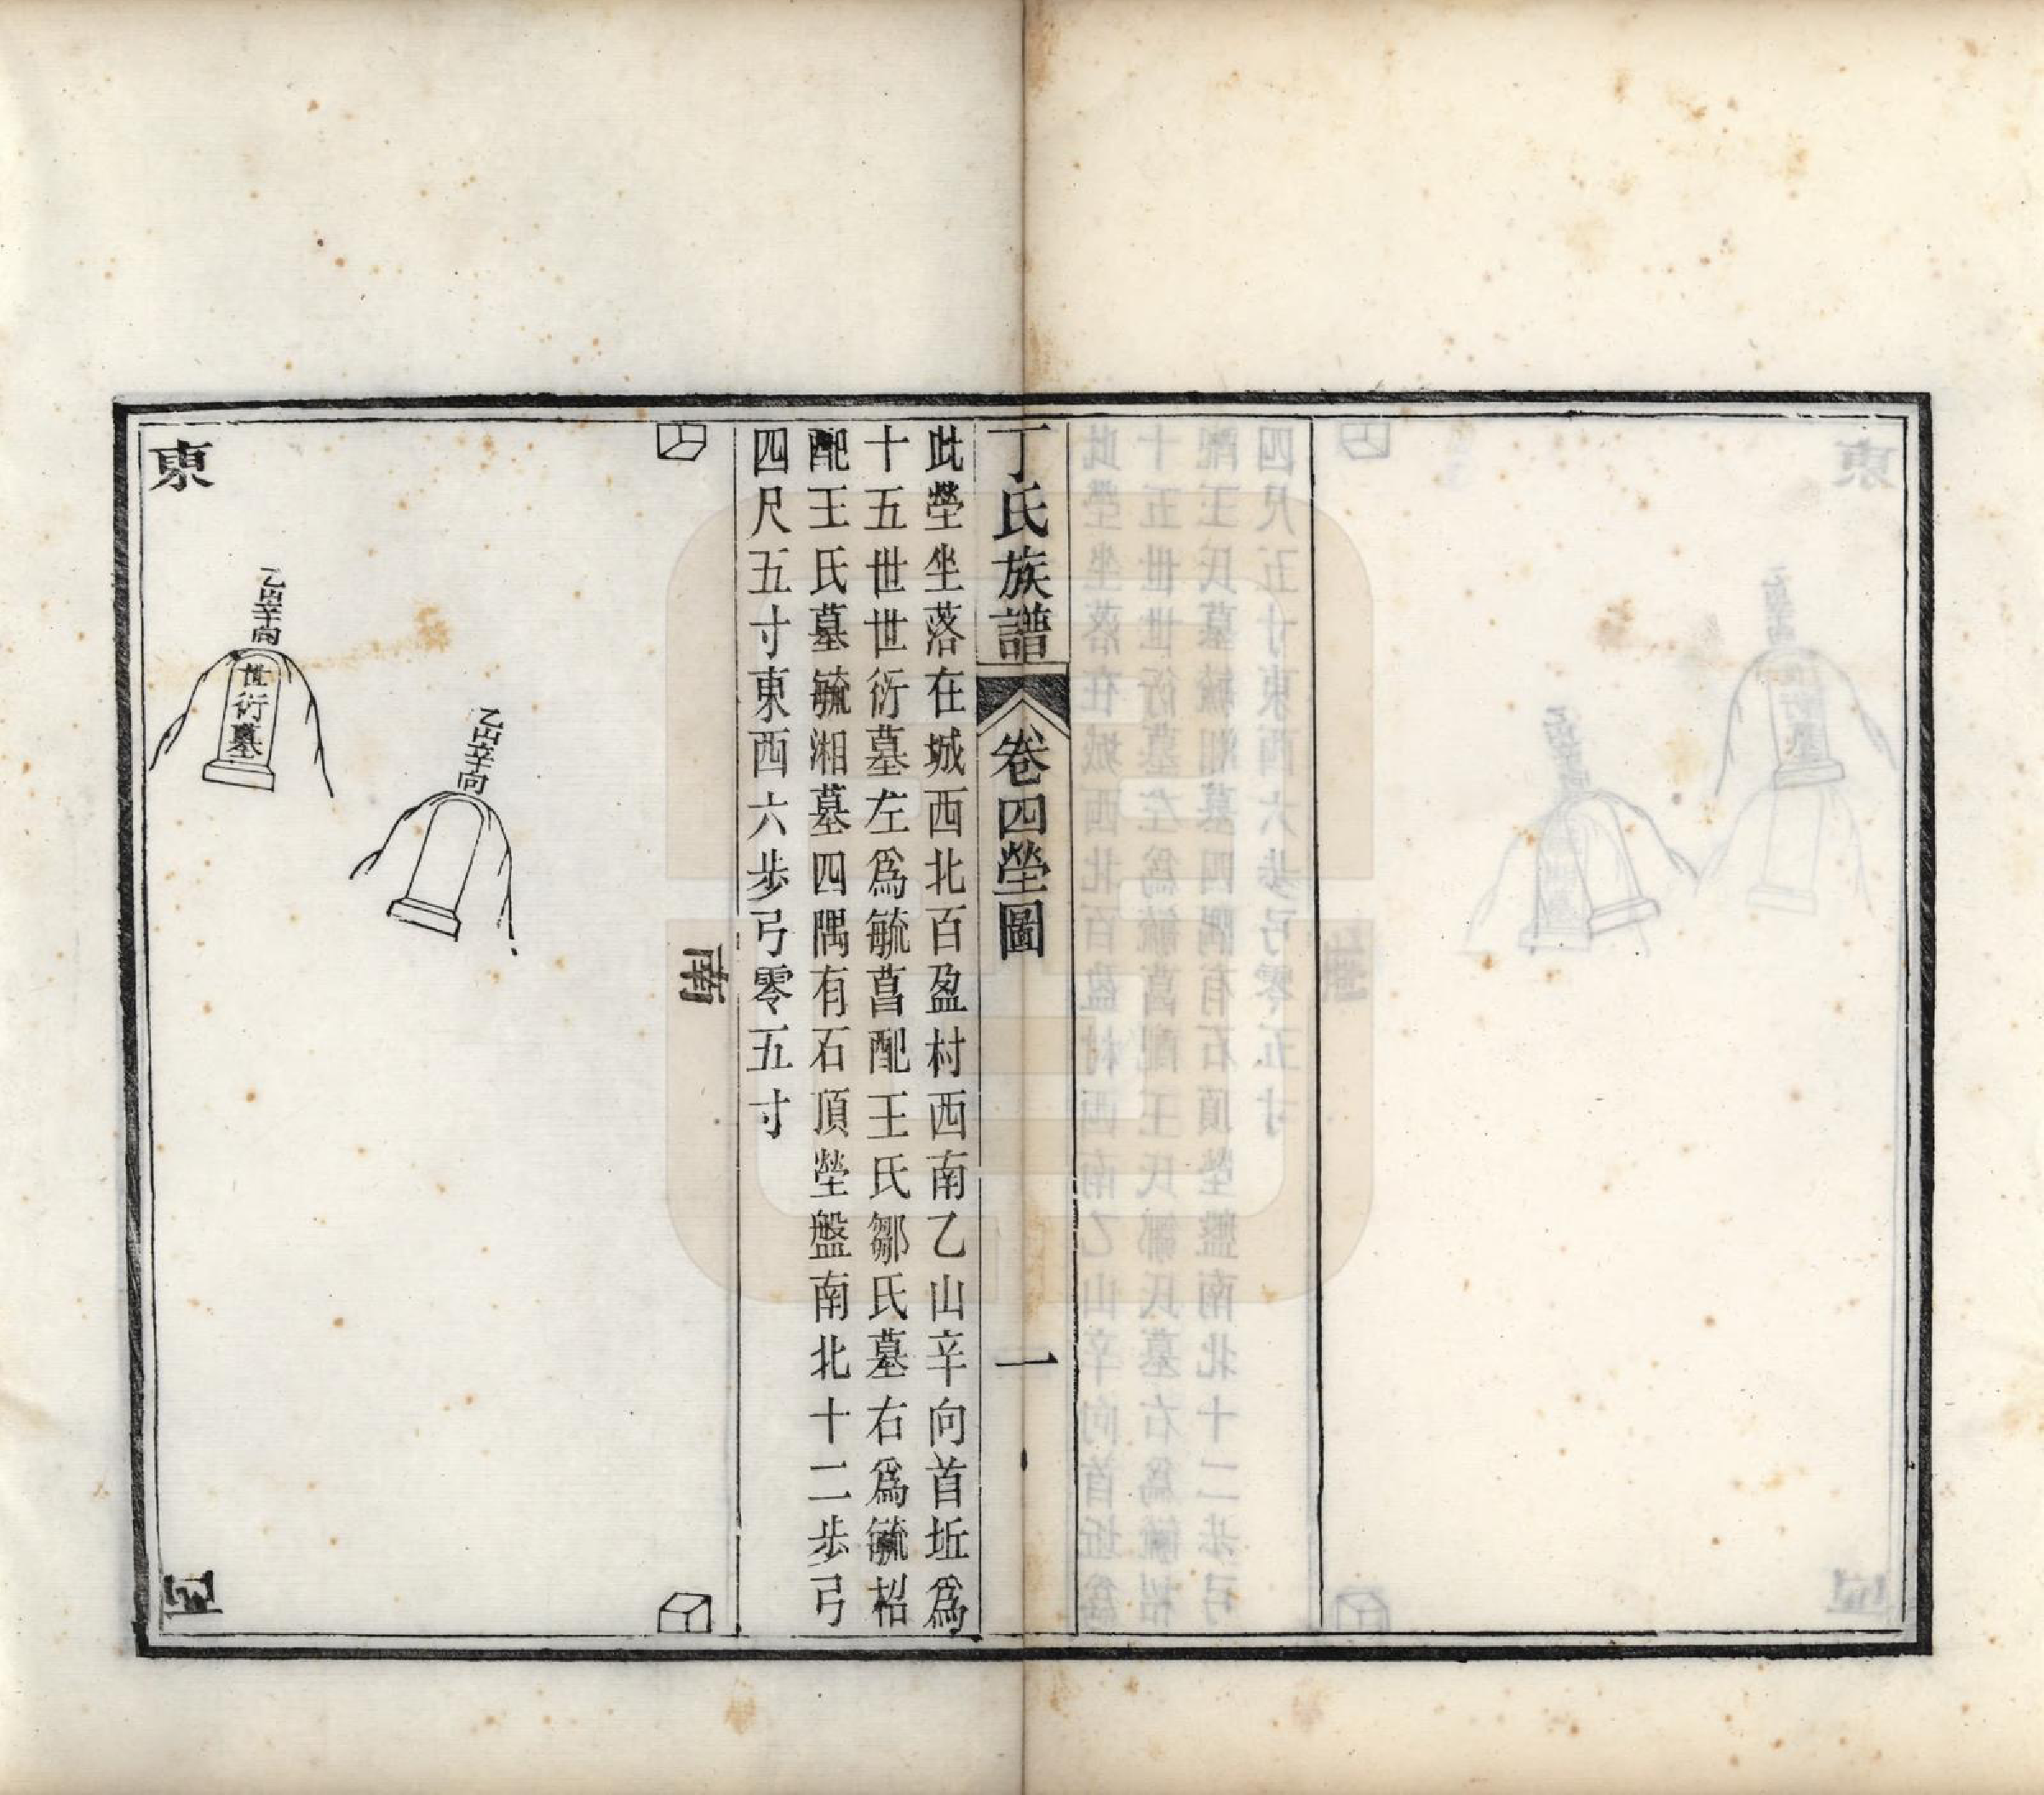 丁氏族譜
卷四塋圖
一
此塋坐落在城西北百盈村西南乙山辛向首坵為
十五世世衍墓左為毓菖配王氏鄒氏墓右為毓柖
配王氏墓毓湘墓四隅有石頂塋盤南北十二歩弓
四尺五寸東西六歩弓零五寸
南
乙山辛向
乙山辛向
世衍墓
東